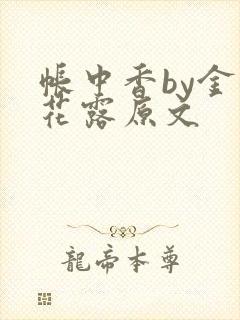 帐中香by金
花露原文
龍帝本尊